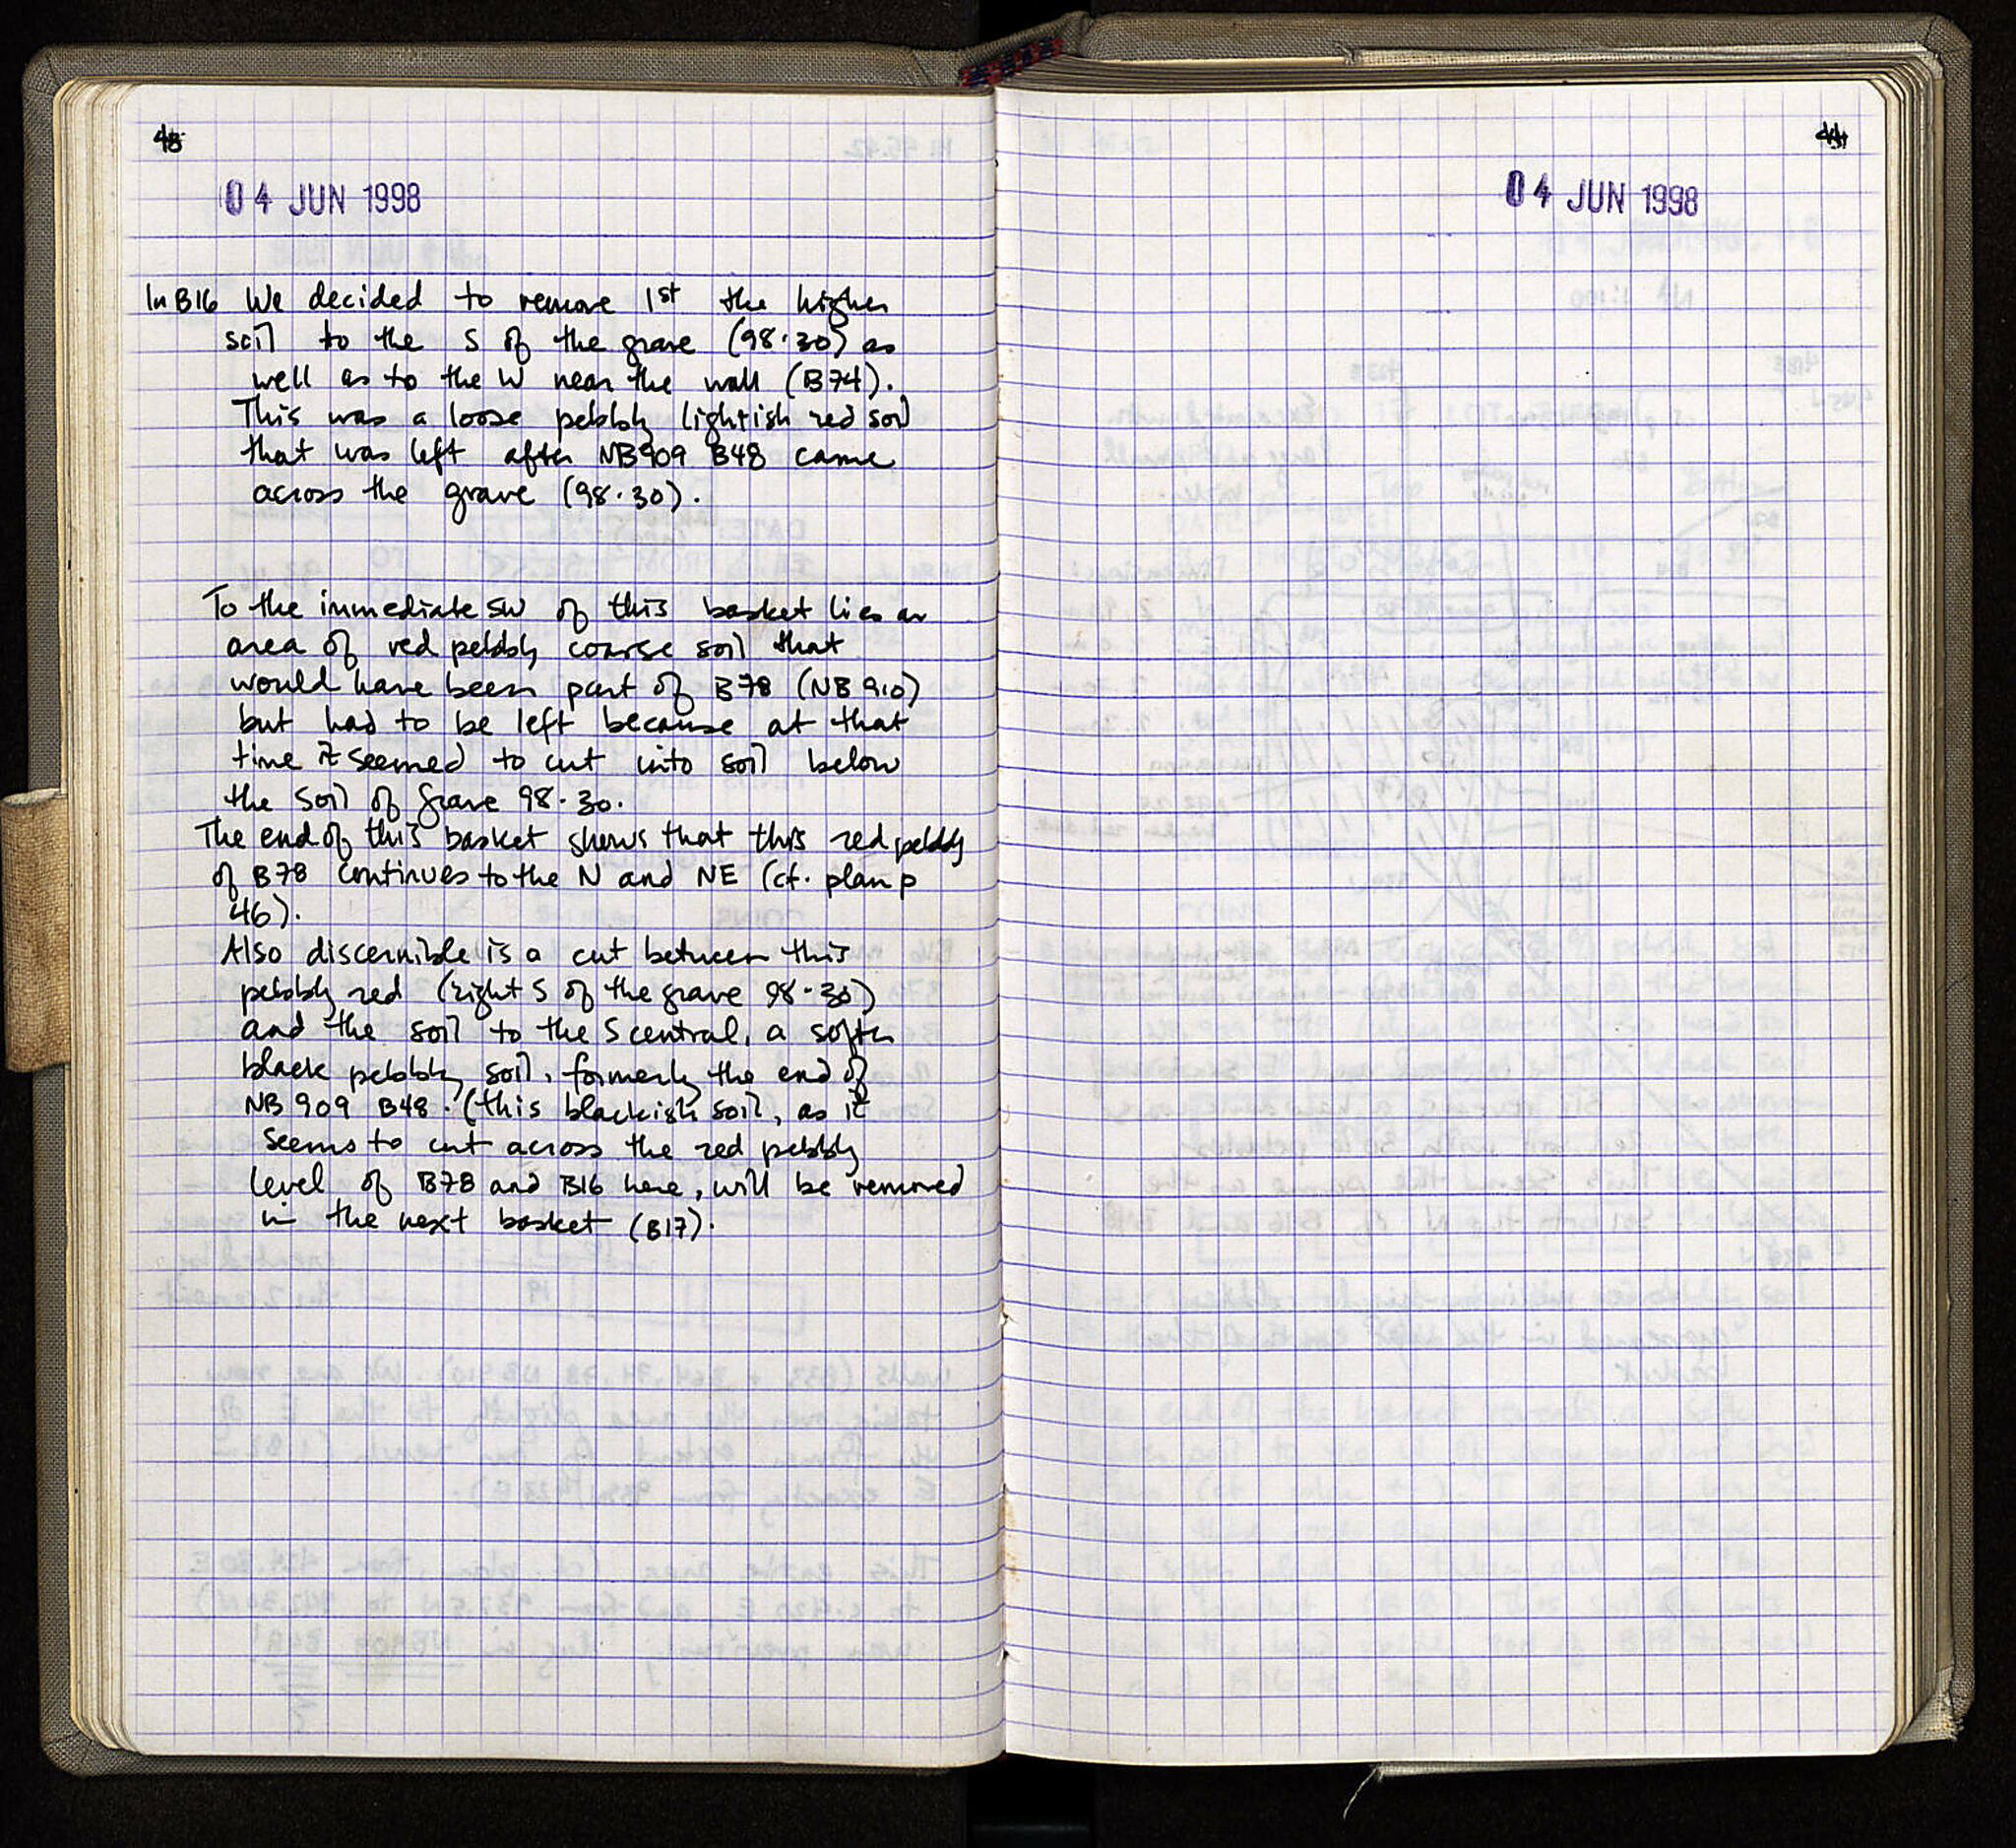 48
04 JUN 1998
In B16 We decided to remove 1st the higher
soil to the S of the grave (98·30) as
well as to the W near the wall (B74).
This was a loose pebbly lightish red soil
that was left after NB909 B48 came
across the grave (98·30).
To the immediate SW of this basket lies an
area of red pebbly coarse soil that
would have been part of B78 (NB 910)
but had to be left because at that
time it seemed to cut into soil below
the soil of grave 98·30.
The end of this basket shows that this red pebbly
of B78 continues to the N and NE (cf. plan p
46).
Also discernible is a cut between this
pebbly red (right S of the grave 98·30)
and the soil to the S central, a softer
black pebbly soil, formerly the end of
NB 909 B48. (this blackish soil, as it
seems to cut across the red pebbly
level of B78 and B16 here, will be removed
in the next basket (B17).
04 JUN 1998